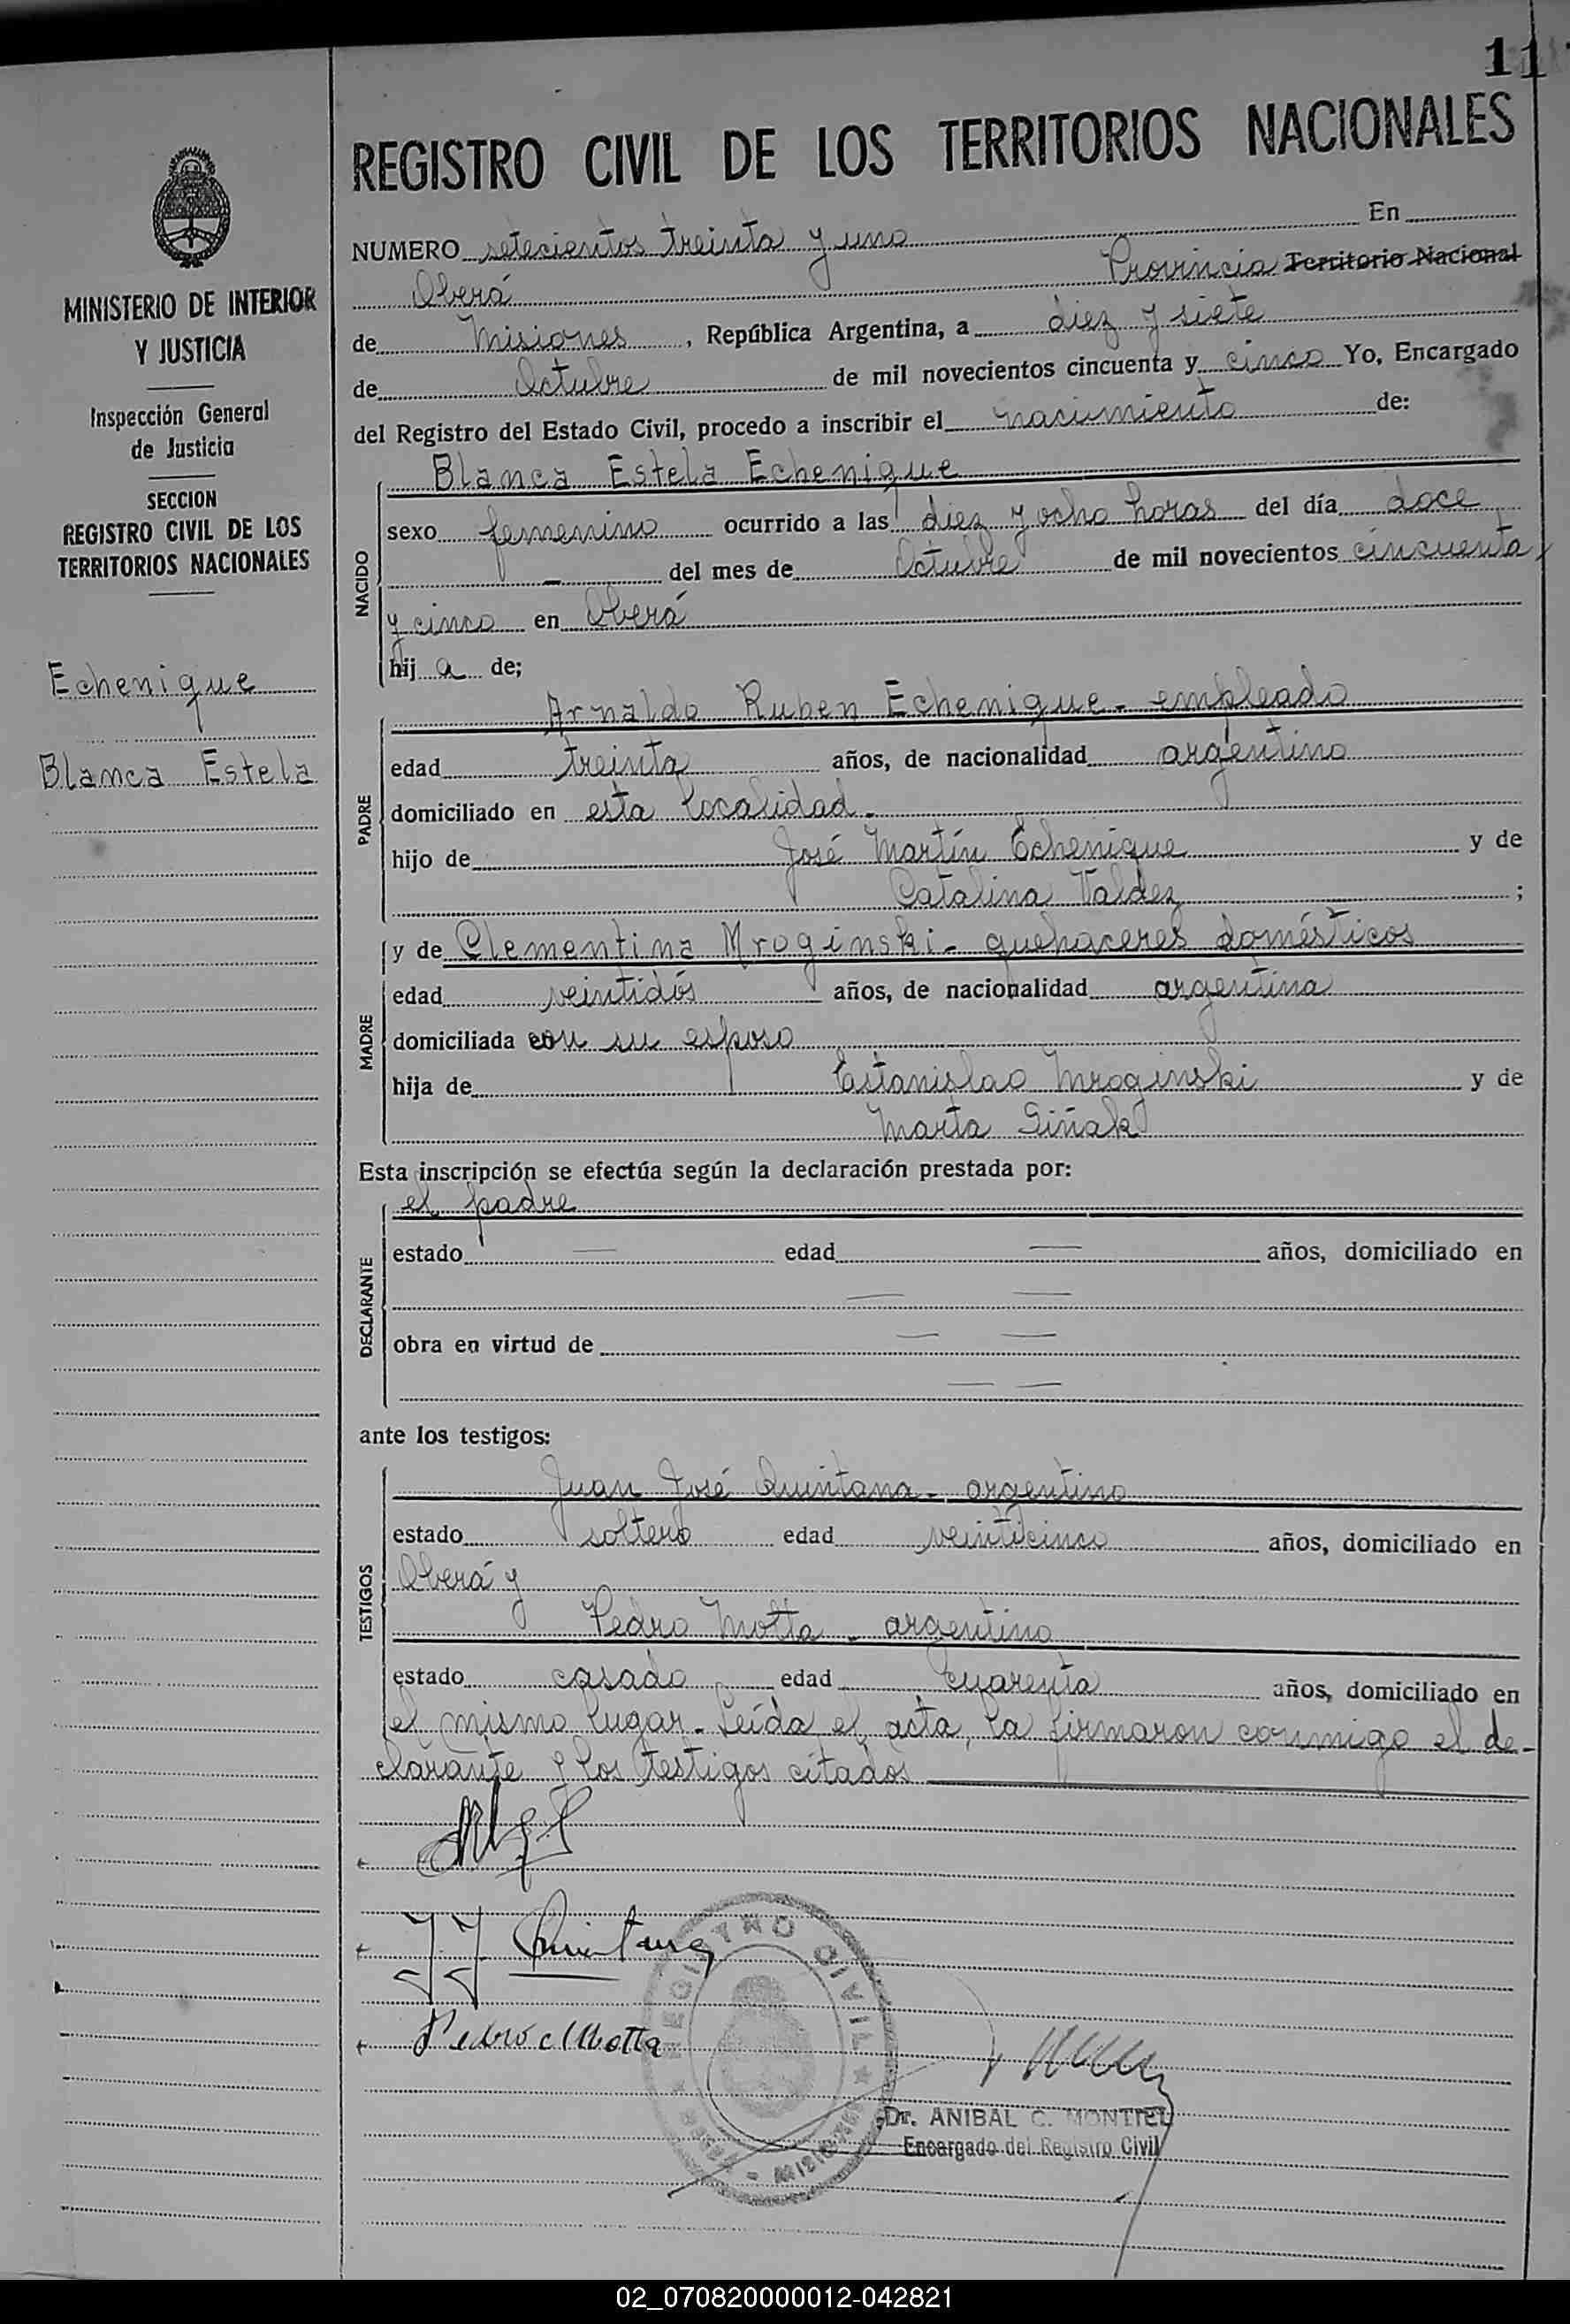 11
REGISTRO CIVIL DE LOS TERRITORIOS NACIONALES
MINISTERIO DE INTERIOR
Y JUSTICIA
Inspección General
de Justicia
SECCION
REGISTRO CIVIL DE LOS
TERRITORIOS NACIONALES
Echenique
Blanca Estela
NUMERO setecientos treinta y uno En
Oberá Provincia Territorio Nacional
de Misiones, República Argentina, a diez y siete
de Octubre de mil novecientos cincuenta y cinco Yo, Encargado
del Registro del Estado Civil, procedo a inscribir el nacimiento de:
NACIDO
Blanca Estela Echenique
sexo femenino ocurrido a las diez y ocho horas del día doce
— del mes de Octubre de mil novecientos cincuenta
y cinco en Oberá
hij a de;
PADRE
Arnaldo Ruben Echenique - empleado
edad treinta años, de nacionalidad argentino
domiciliado en esta localidad.
hijo de José Martín Echenique y de
Catalina Valdez ;
MADRE
y de Clementina Mroginski - quehaceres domésticos
edad veintidós años, de nacionalidad argentina
domiciliada con su esposo
hija de Estanislao Mroginski y de
Marta Siñak
Esta inscripción se efectúa según la declaración prestada por:
DECLARANTE
el padre
estado — edad — años, domiciliado en
— —
obra en virtud de — —
— —
ante los testigos:
TESTIGOS
Juan José Quintana - argentino
estado soltero edad veinticinco años, domiciliado en
Oberá y
Pedro Motta - argentino
estado casado edad cuarenta años, domiciliado en
el mismo lugar. Leída el acta, la firmaron conmigo el de-
clarante y los testigos citados
JJ Quintana
Pedro Motta
REGISTRO CIVIL
MISIONES
Dr. ANIBAL C. MONTIEL
Encargado del Registro Civil
02_070820000012-042821